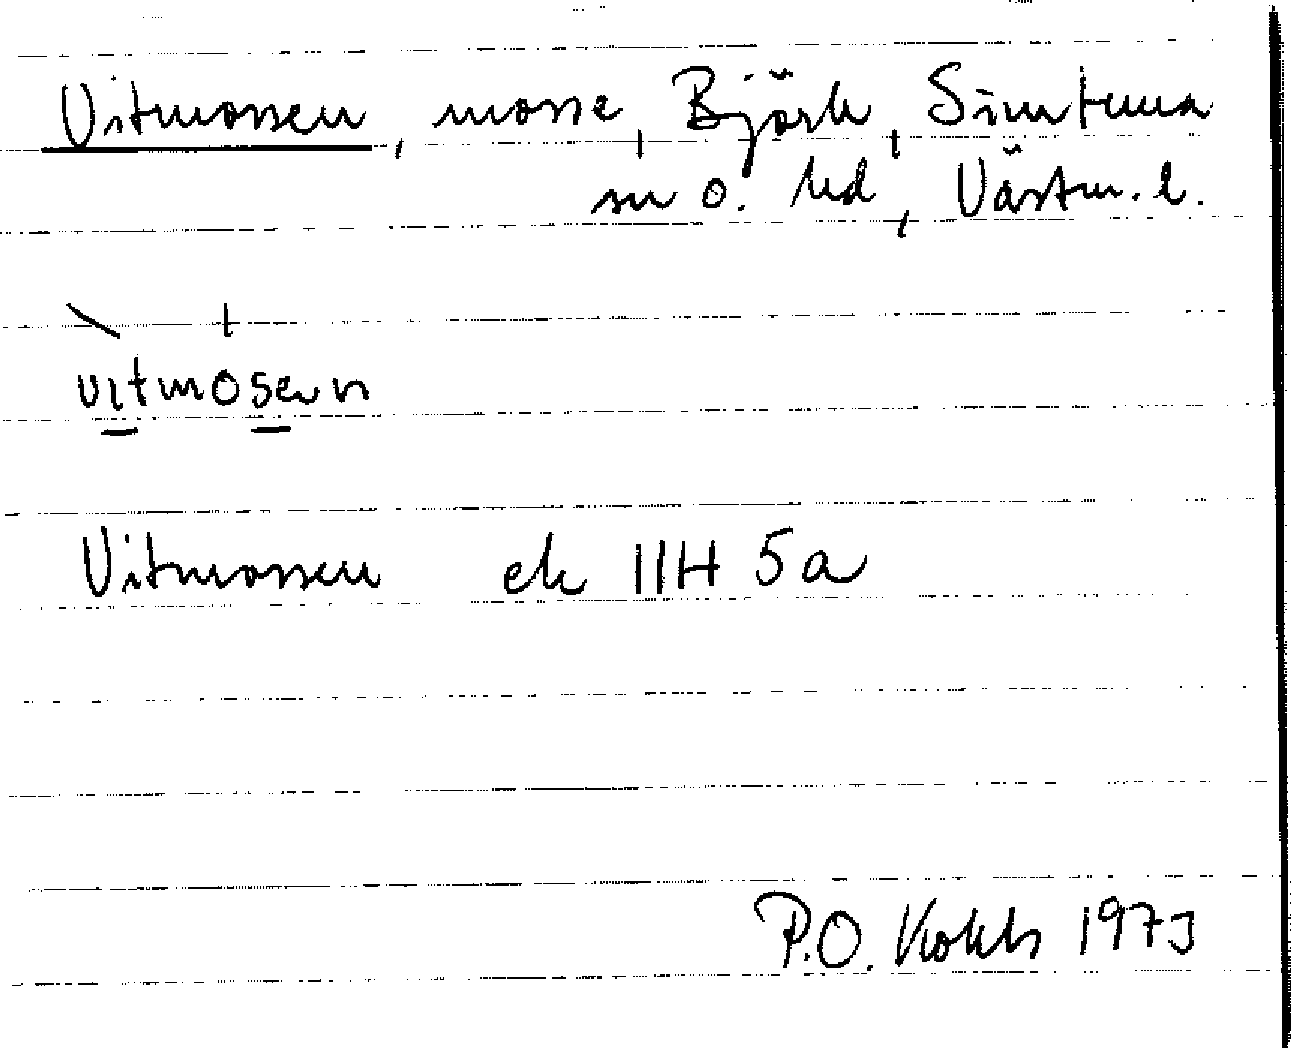 Vitmossen, mosse, Björk, Simtuna
sn o. hd, Västm. l.
vitmosen
Vitmossen ek 11H 5a
P.O. 1973